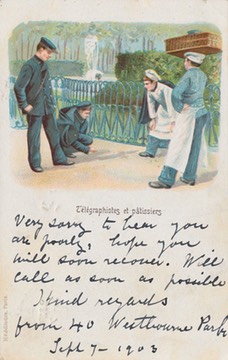 Télégraphistes et pâtissiers
Very sorry to hear you
are poorly, hope you
will soon recover. Will
call as soon as possible
Kind regards
from 40 Westbourne Park
Sept 7 - 1903